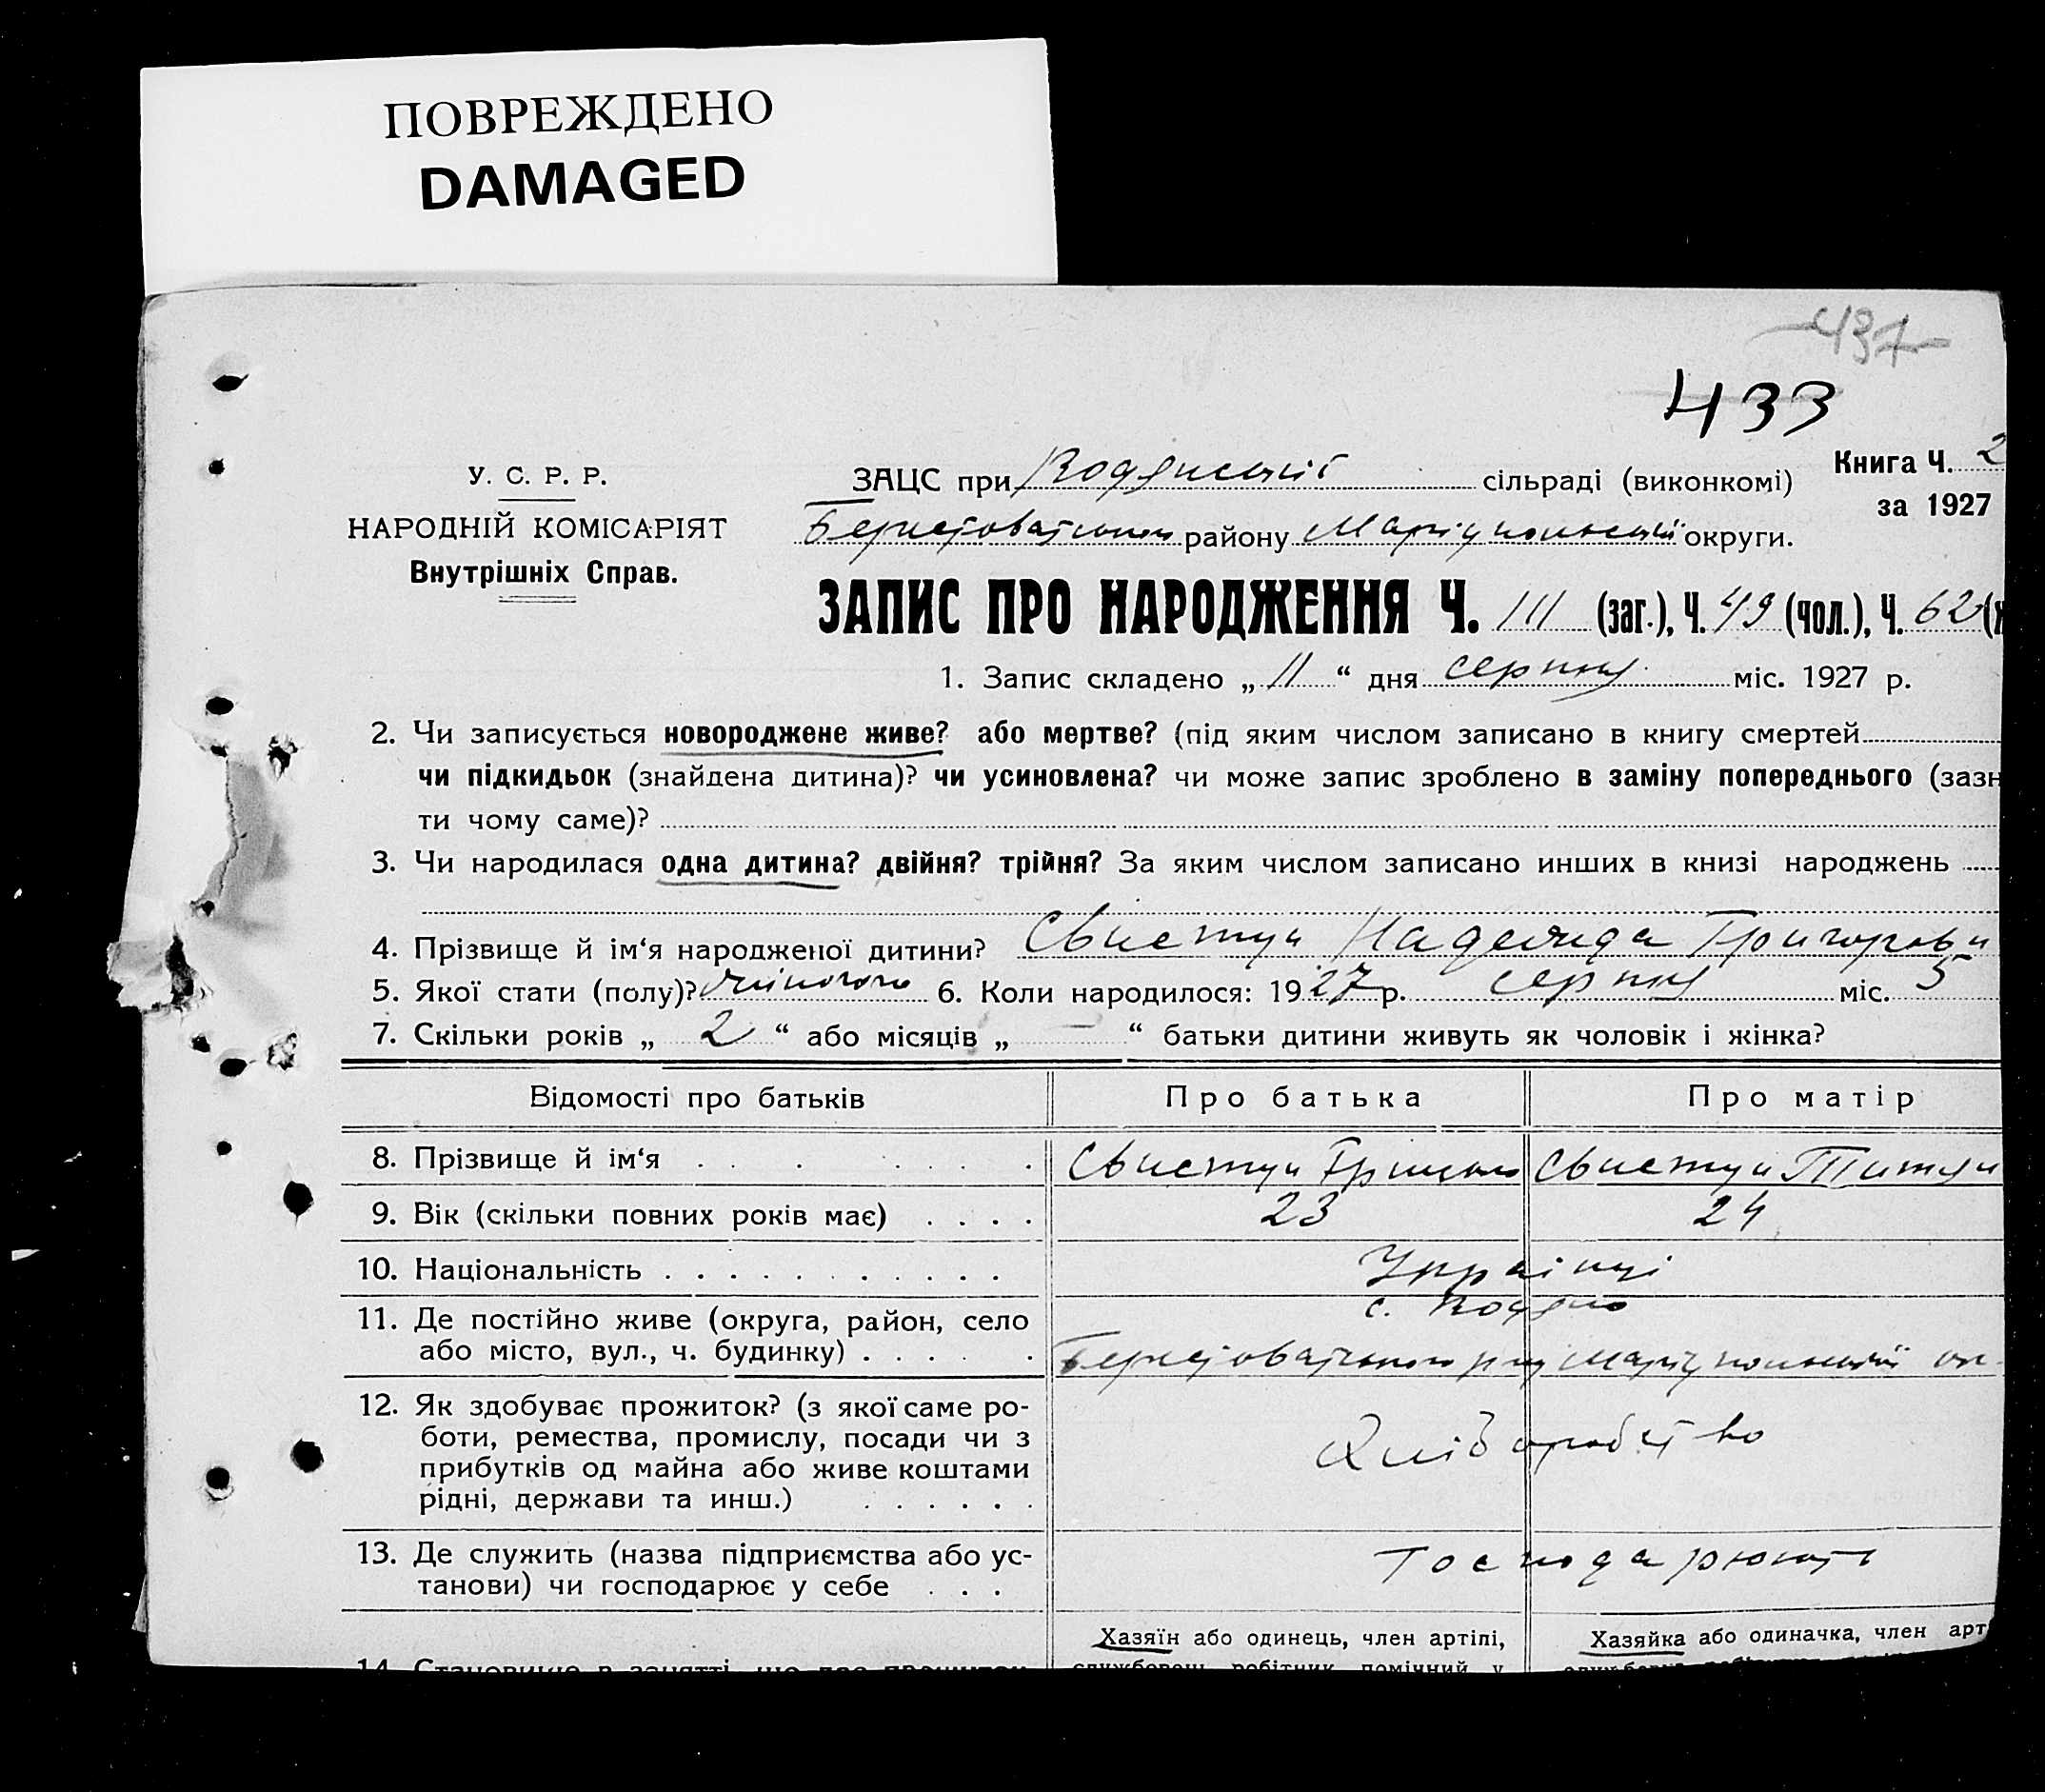 ПОВРЕЖДЕНО
DAMAGED
437
433
У. С. Р. Р.
НАРОДНІЙ КОМІСАРІЯТ
Внутрішніх Справ.
ЗАЦС при Водянській сільраді (виконкомі)
Книга Ч. 2
за 1927
району Маріупольської округи.
ЗАПИС ПРО НАРОДЖЕННЯ Ч. 111 (заг.), Ч. 49 (чол.), Ч. 62 (ж
1. Запис складено „ 11 “ дня серпня міс. 1927 р.
2. Чи записується новороджене живе? або мертве? (під яким числом записано в книгу смертей
чи підкидьок (знайдена дитина)? чи усиновлена? чи може запис зроблено в заміну попереднього (зазн
ти чому саме)?
3. Чи народилася одна дитина? двійня? трійня? За яким числом записано инших в книзі народжень
4. Прізвище й ім‘я народженої дитини? Свистун Надежда Григоровн
5. Якої стати (полу)? жіночого 6. Коли народилося: 1927 р. серпня міс. 5
7. Скільки років „ 2 “ або місяців „ — “ батьки дитини живуть як чоловік і жінка?
Відомості про батьків Про батька Про матір
8. Прізвище й ім‘я . . . . . . . . Свистун Грицько Свистун
9. Вік (скільки повних років має) . . . . 23 24
10. Національність . . . . . . . . . . . Українці
11. Де постійно живе (округа, район, село с. Водяно
або місто, вул., ч. будинку) . . . . . Маріупольської ок.
12. Як здобуває прожиток? (з якої саме ро-
боти, ремества, промислу, посади чи з Хліборобство
прибутків од майна або живе коштами
рідні, держави та инш.) . . . . . .
13. Де служить (назва підприємства або ус- Господарюють
танови) чи господарює у себе . . .
Хазяїн або одинець, член артілі, Хазяйка або одиначка, член арт
14. Становище в занятті, що дає прожиток службовець, робітник, помічний у